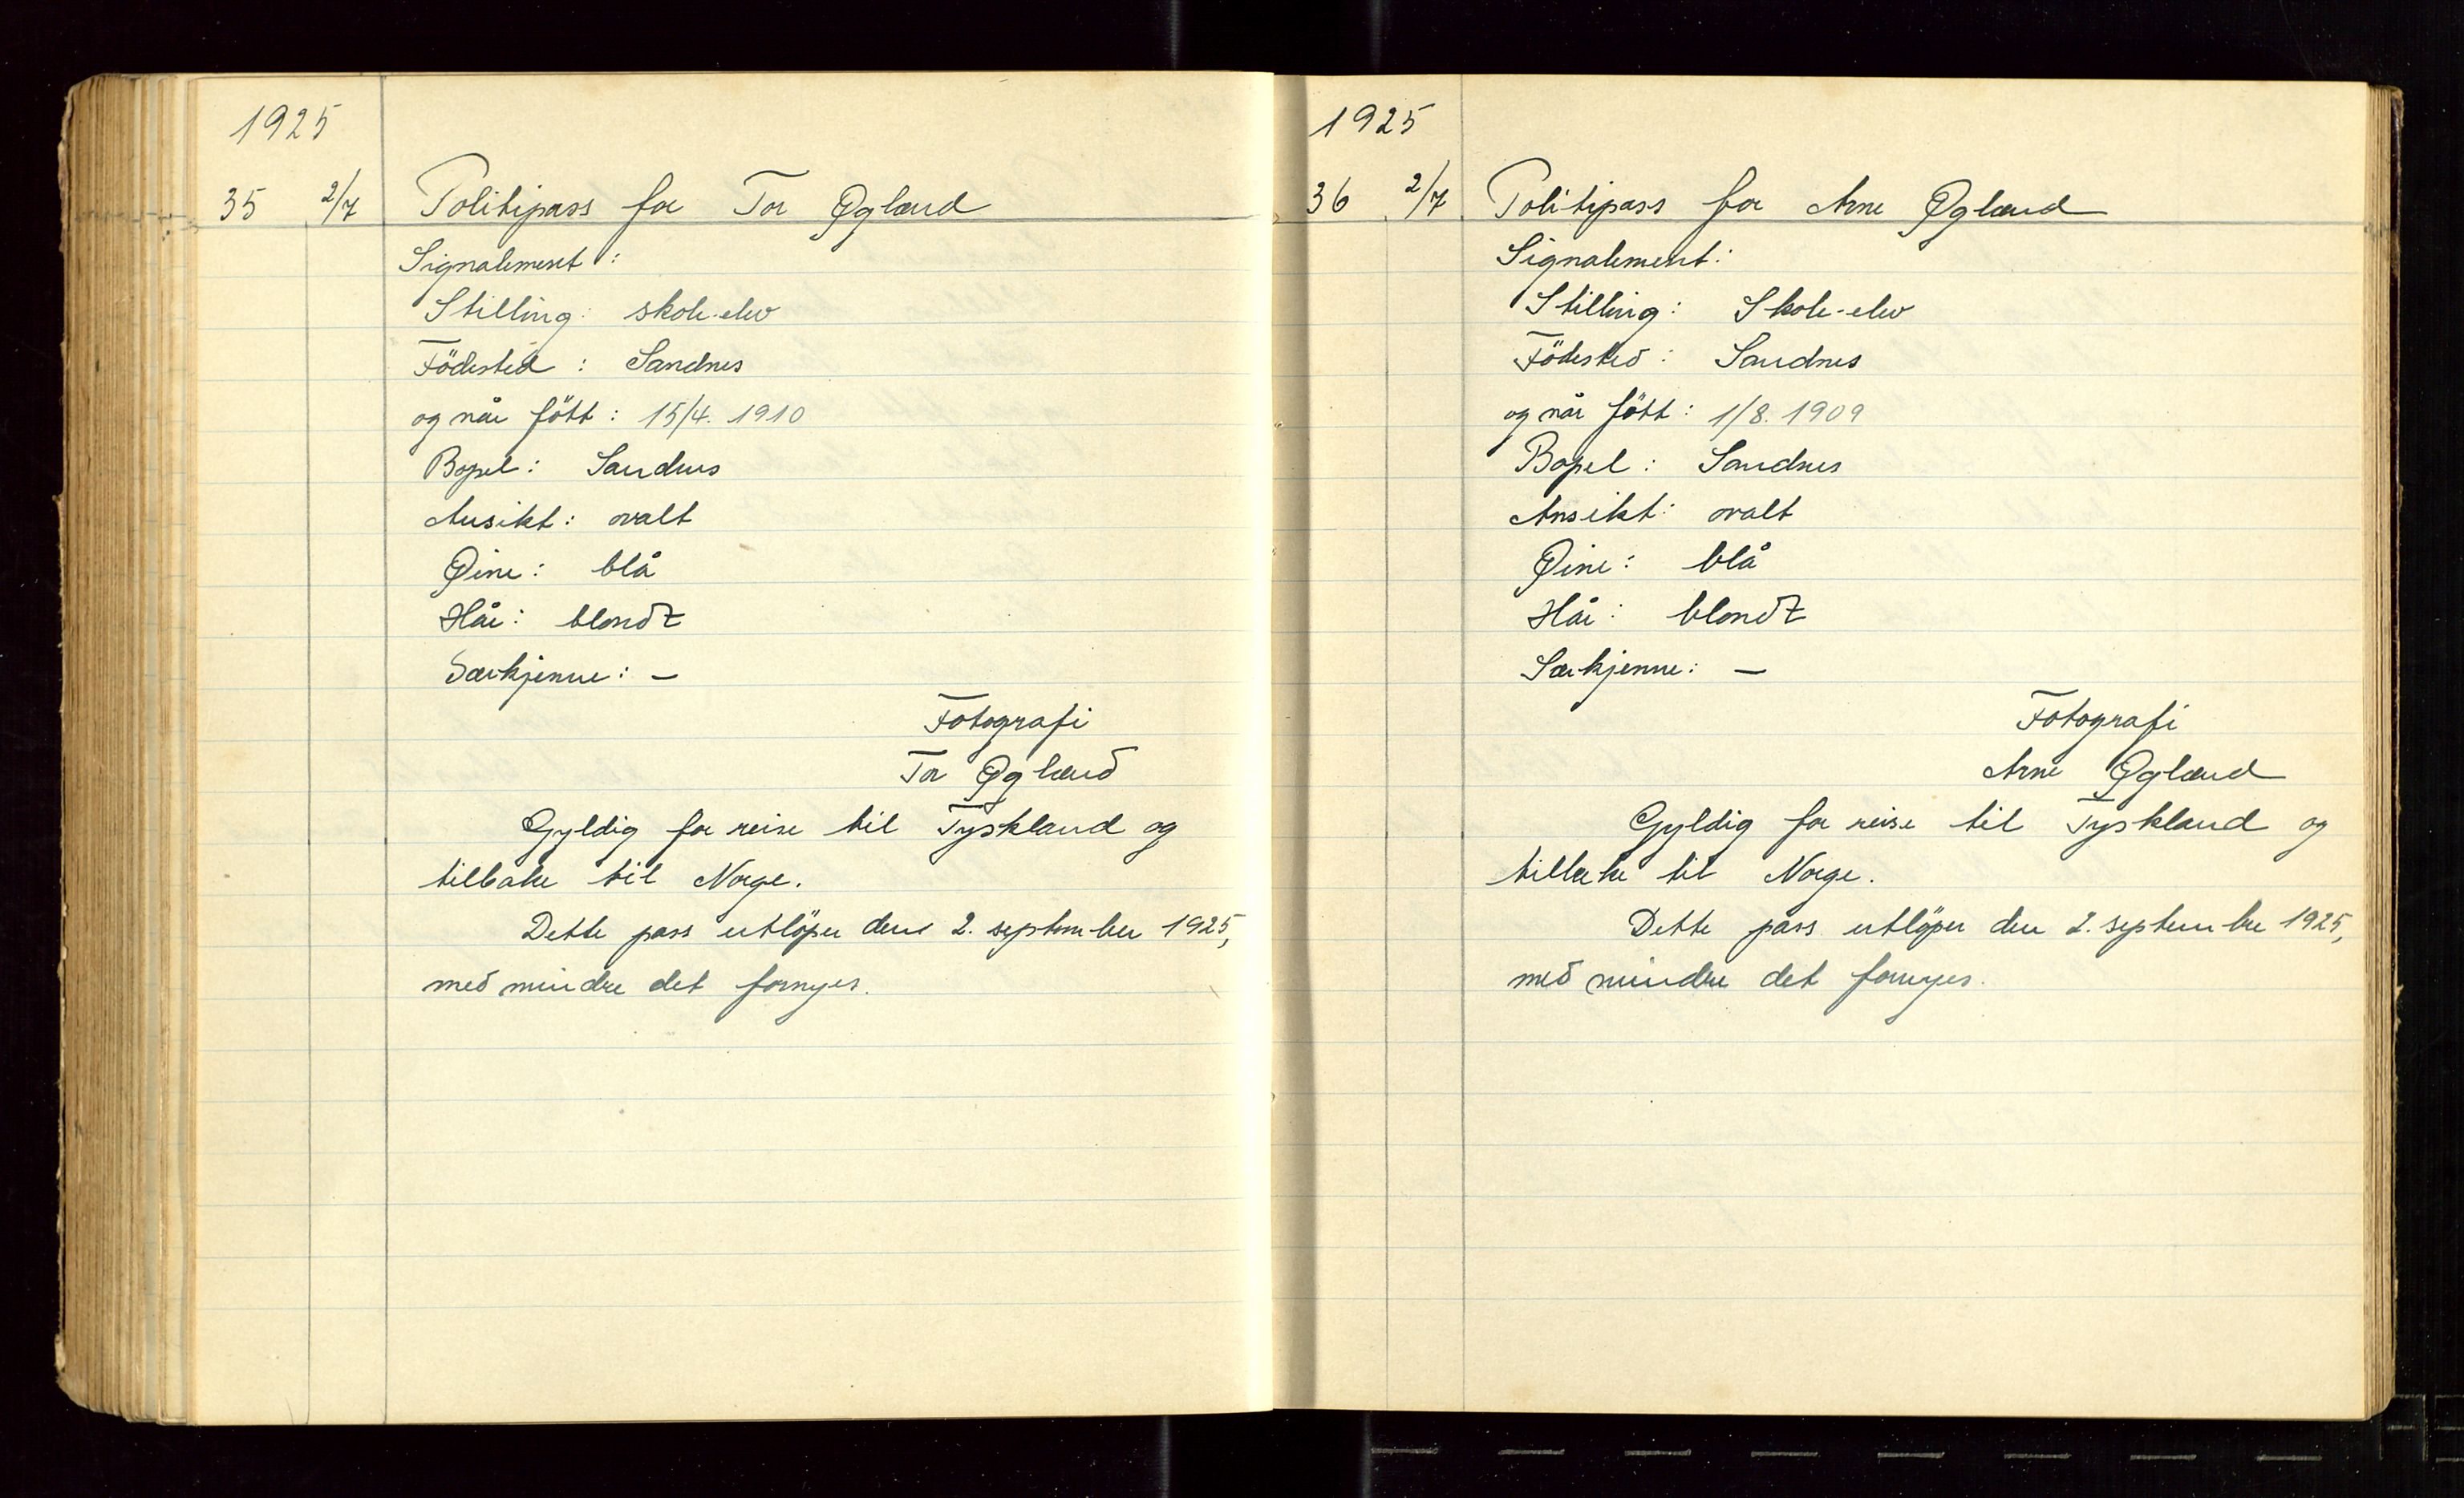 1925
35 2/7 Politipass for Tor Øglænd
Signalement:
Stilling: skole-elev
Födested: Sandnes
og når fött: 15/4. 1910
Bopel: Sandnes
Ansikt: ovalt
Øine: blå
Hår: blondt
Særkjenne: —
Fotografi
Tor Øglænd
Gyldig for reise til Tyskland og
tilbake til Norge.
Dette pass utlöper den 2. september 1925,
med mindre det fornyes.
1925
36 2/7 Politipass for Arne Øglænd
Signalement:
Stilling: Skole-elev
Födested: Sandnes
og når fött: 1/8. 1909
Bopel: Sandnes
Ansikt: ovalt
Øine: blå
Hår: blondt
Særkjenne: —
Fotografi
Arne Øglænd
Gyldig for reise til Tyskland og
tilbake til Norge.
Dette pass utlöper den 2. september 1925,
med mindre det fornyes.